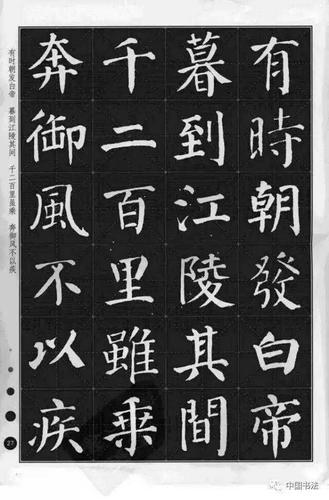 有時朝發白帝
暮到江陵其間
千二百里雖乘
奔御風不以疾
有时朝发白帝　暮到江陵其间　千二百里虽乘　奔御风不以疾
27
中国书法